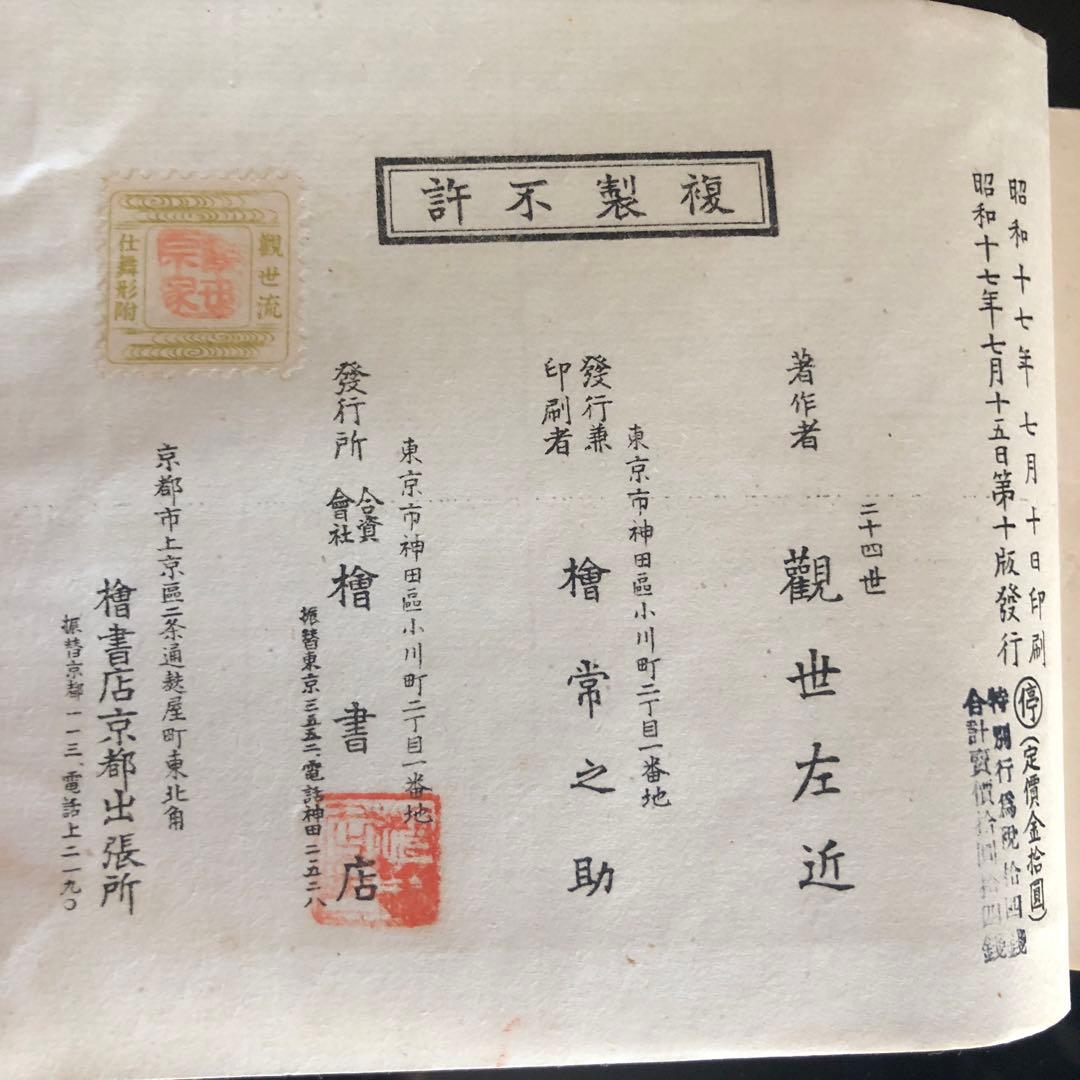 複製不許
昭和十七年七月十日印刷
昭和十七年七月十五日第十版發行
停(定價金拾圓)
特別行爲税拾四錢
合計賣價拾圓拾四錢
著作者
二十四世
觀世左近
東京市神田區小川町二丁目一番地
發行兼
印刷者
檜常之助
東京市神田區小川町二丁目一番地
發行所
合資
會社
檜書店
振替東京三五五二、電話神田二五二八
京都市上京區二条通麩屋町東北角
檜書店京都出張所
振替京都一一三、電話上二一九〇
觀世流
仕舞形附